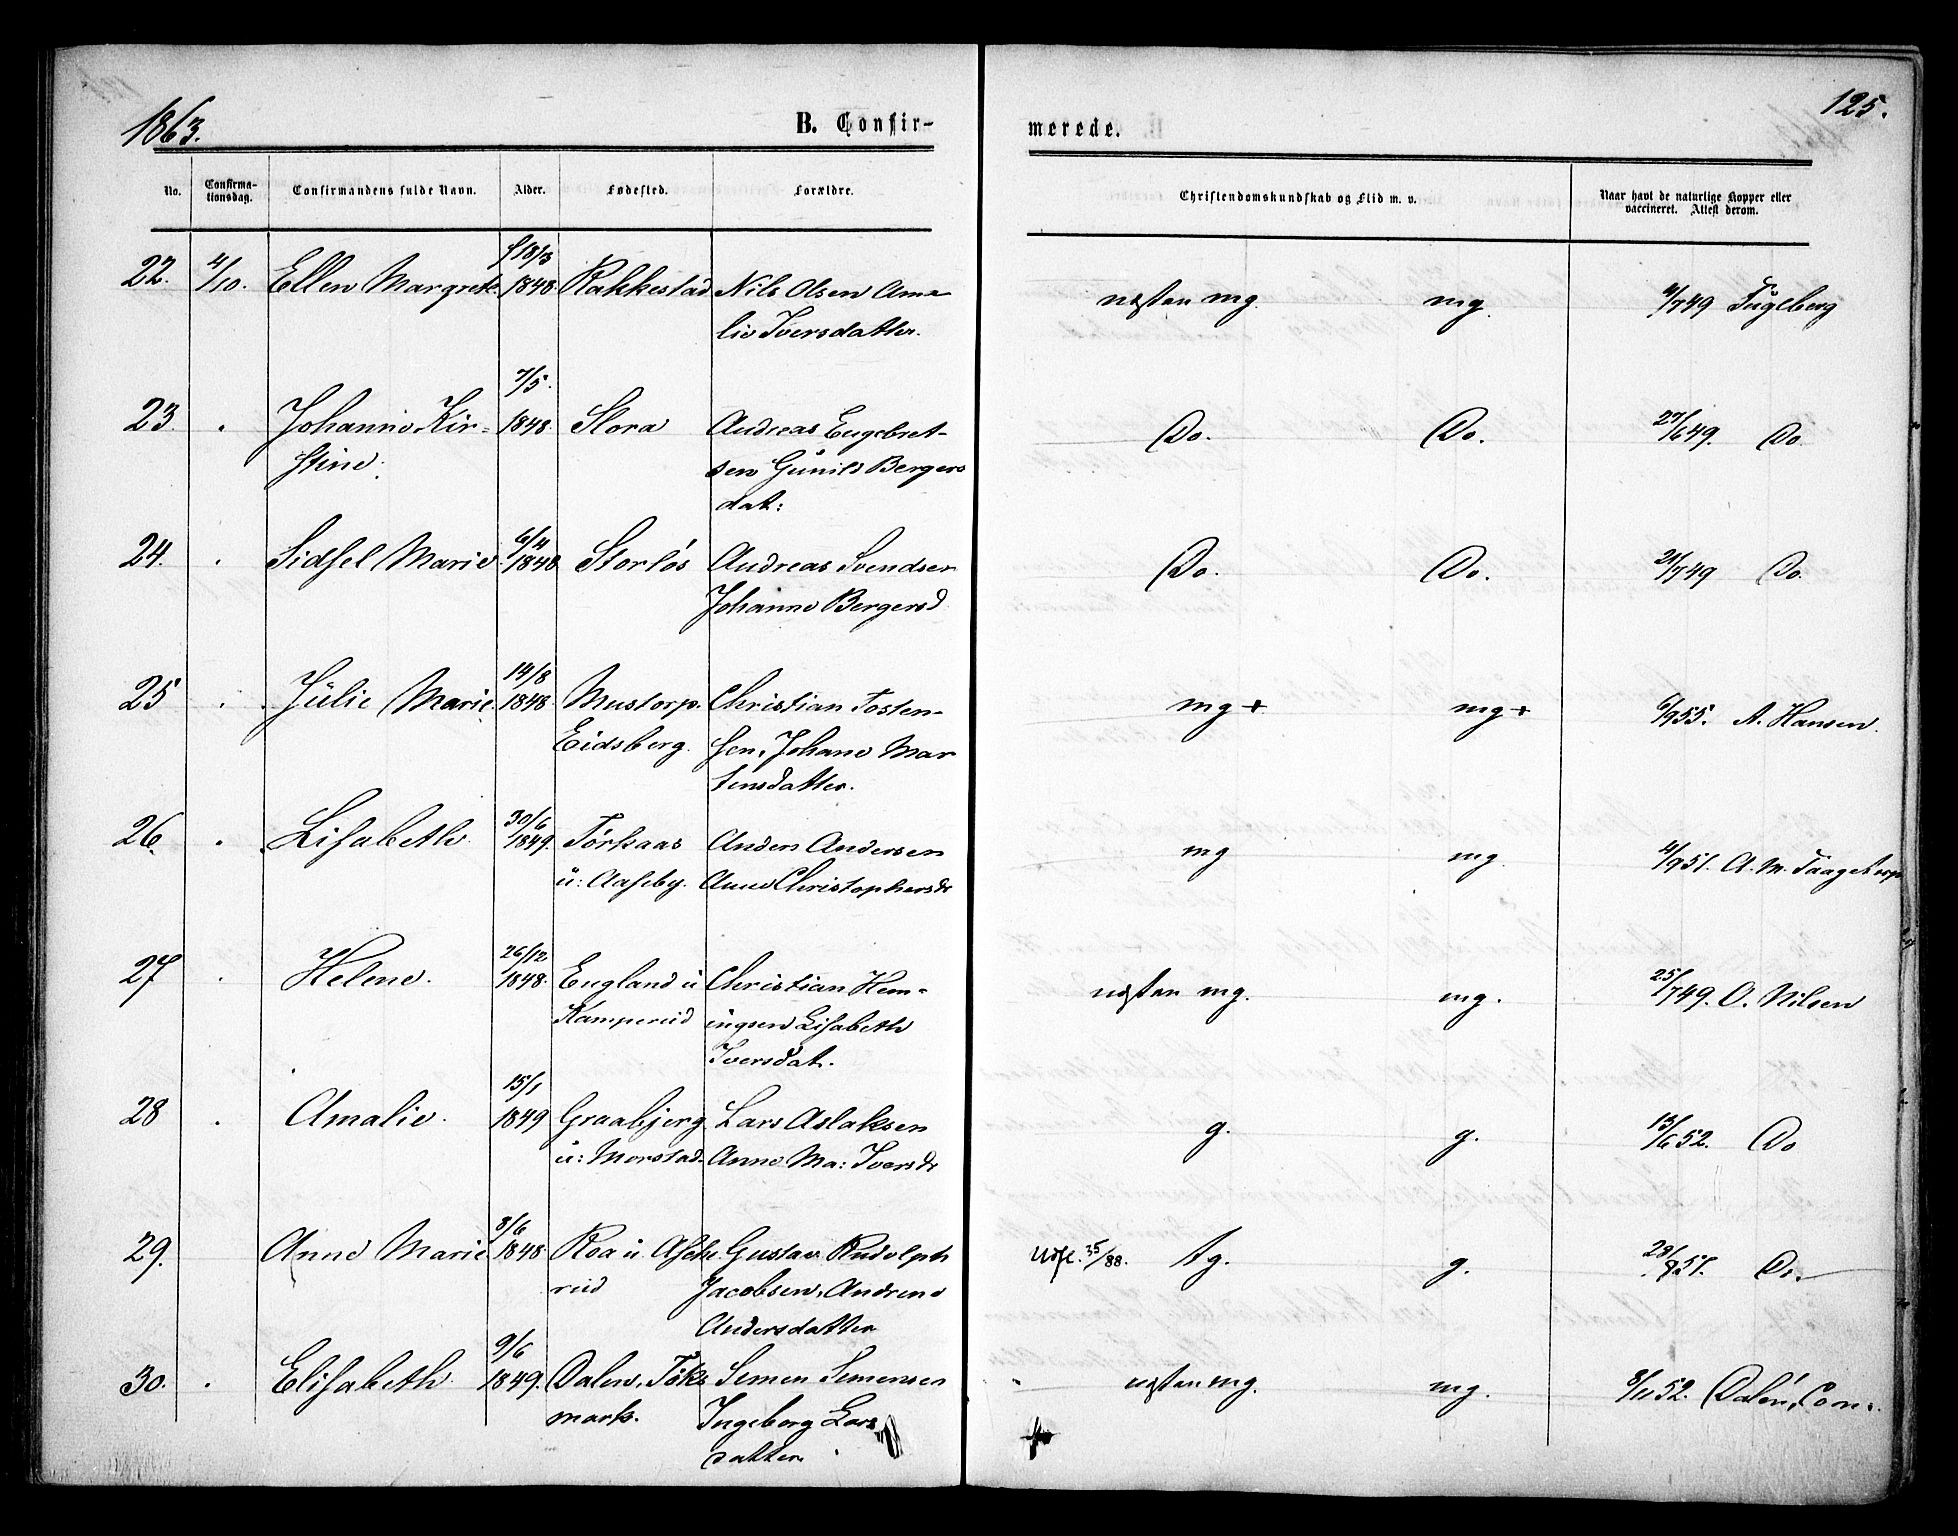 1863.
B. Confir-
merede.
125.
No.
Confirma-
tionsdag.
Confirmandens fulde Navn.
Alder.
Fødested.
Forældre.
Christendomskundskab og Flid m. v.
Naar havt de naturlige Kopper eller
vaccineret. Attest derom.
22. 4/10. Ellen Margret. f 18/3 1848. Rakkestad Nils Olsen Ama-
lie Iversdatter.
næsten mg. mg. 4/7 49 Fuglberg
23. " Johanne Kir- 7/5. 1848. Slora Andreas Engebret-
stine. sen Gunild Bergers
dat:
Do. Do. 27/6 49. Do.
24. " Sidsel Marie 6/4 1848 Storløs Andreas Svendsen
Johanne Bergersd
Do. Do. 21/7 49 Do.
25 " Julie Marie. 14/8 1848. Mustorp. Christian Tosten-
Eidsberg. sen, Johane Mar
tensdatter.
mg + mg + 6/9 55. A. Hansen.
26. " Lisabeth 30/6 1849. Torkaas Anders Andersen
u: Aaseby. Anne Christophersdr
mg mg. 4/9 51. A. M. Taagetorp
27 " Helene. 26/12 1848. England u Christian Hem-
Kampeniid ingsen Lisabeth
Iversdat.
næsten mg. mg. 25/7 49. O. Nilsen
28 " Amalie. 15/1 1849 Graabjerg Lars Aslaksen
u: Morstad. Anne Ma: Iversdr
g. g. 13/6 52. Do
29. Anne Marie 8/6 1848 Roa u. Gustav Rudolph
rud Jacobsen, Andrene
Andersdatter
Udfl. 35/88. tg. g. 28/ 51. Do.
30. " Elisabeth 9/6 1849. Dalen, Töks Simen Simensen
mark. Ingeborg Lars
datter.
næsten mg. mg. 8/11 52. Dalen, Con.